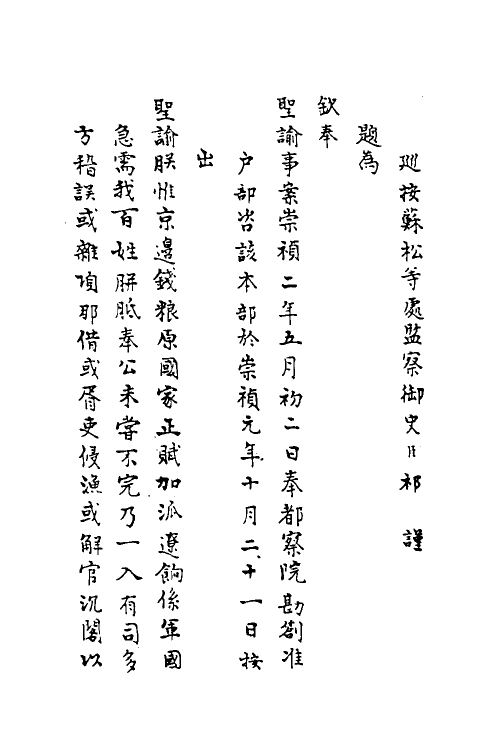 廵按蘇松等處監察御史臣祁　謹
題為
欽奉
聖諭事案崇禎二年五月初二日奉都察院勘劄准
户部咨該本部於崇禎元年十月二十一日接
出
聖諭朕惟京邊錢粮原國家正賦加派遼餉係軍國
急需我百姓胼胝奉公未嘗不完乃一入有司多
方稽誤或雜項那借或胥吏侵漁或解官沉閣以